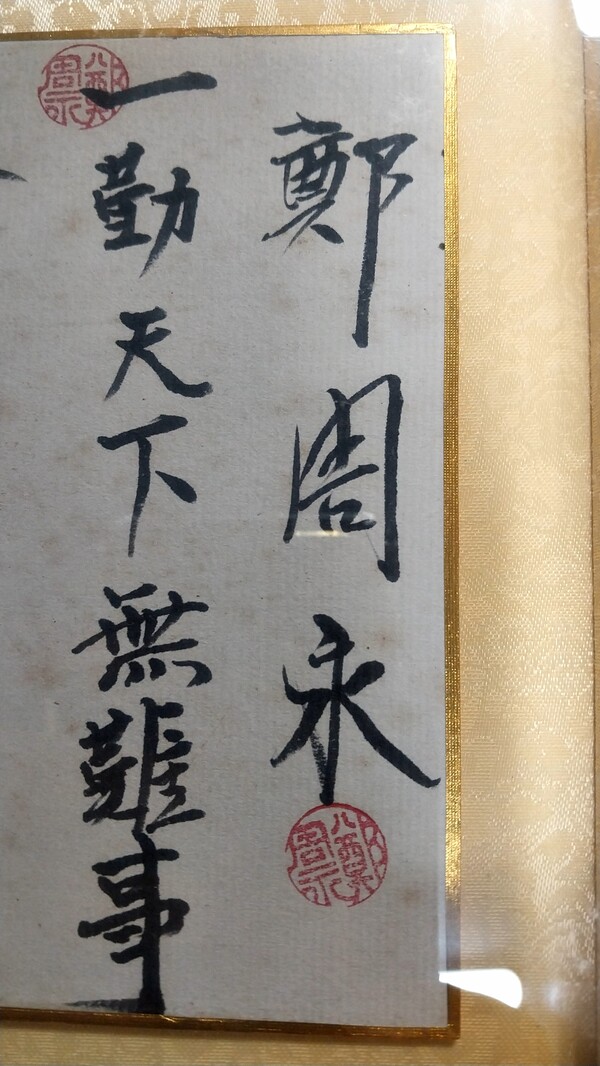 鄭周永
一勤天下無難事
鄭周永
鄭周永